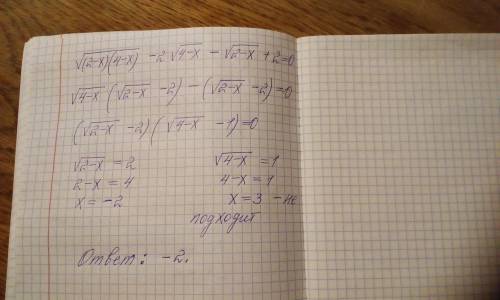 √(2-x)(4-x) - 2√4-x - √2-x + 2 = 0
√4-x (√2-x - 2) - (√2-x - 2) = 0
(√2-x - 2)(√4-x - 1) = 0
√2-x = 2 √4-x = 1
2-x = 4 4-x = 1
x = -2 x = 3 - не
подходит
Ответ: -2.